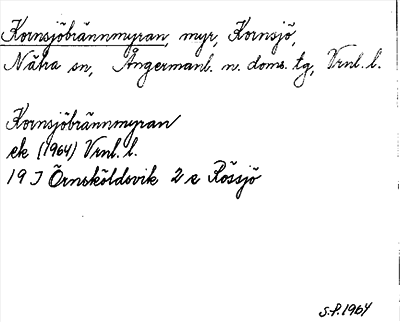 Kornsjöbrännmyran, myr, Kornsjö,
Nätra sn, Ångermanl. n. doms. tg, Vrnl. l.
Kornsjöbrännmyran
ek (1964) Vrnl. l.
19 J Örnsköldsvik 2 e Rössjö
S.P. 1964